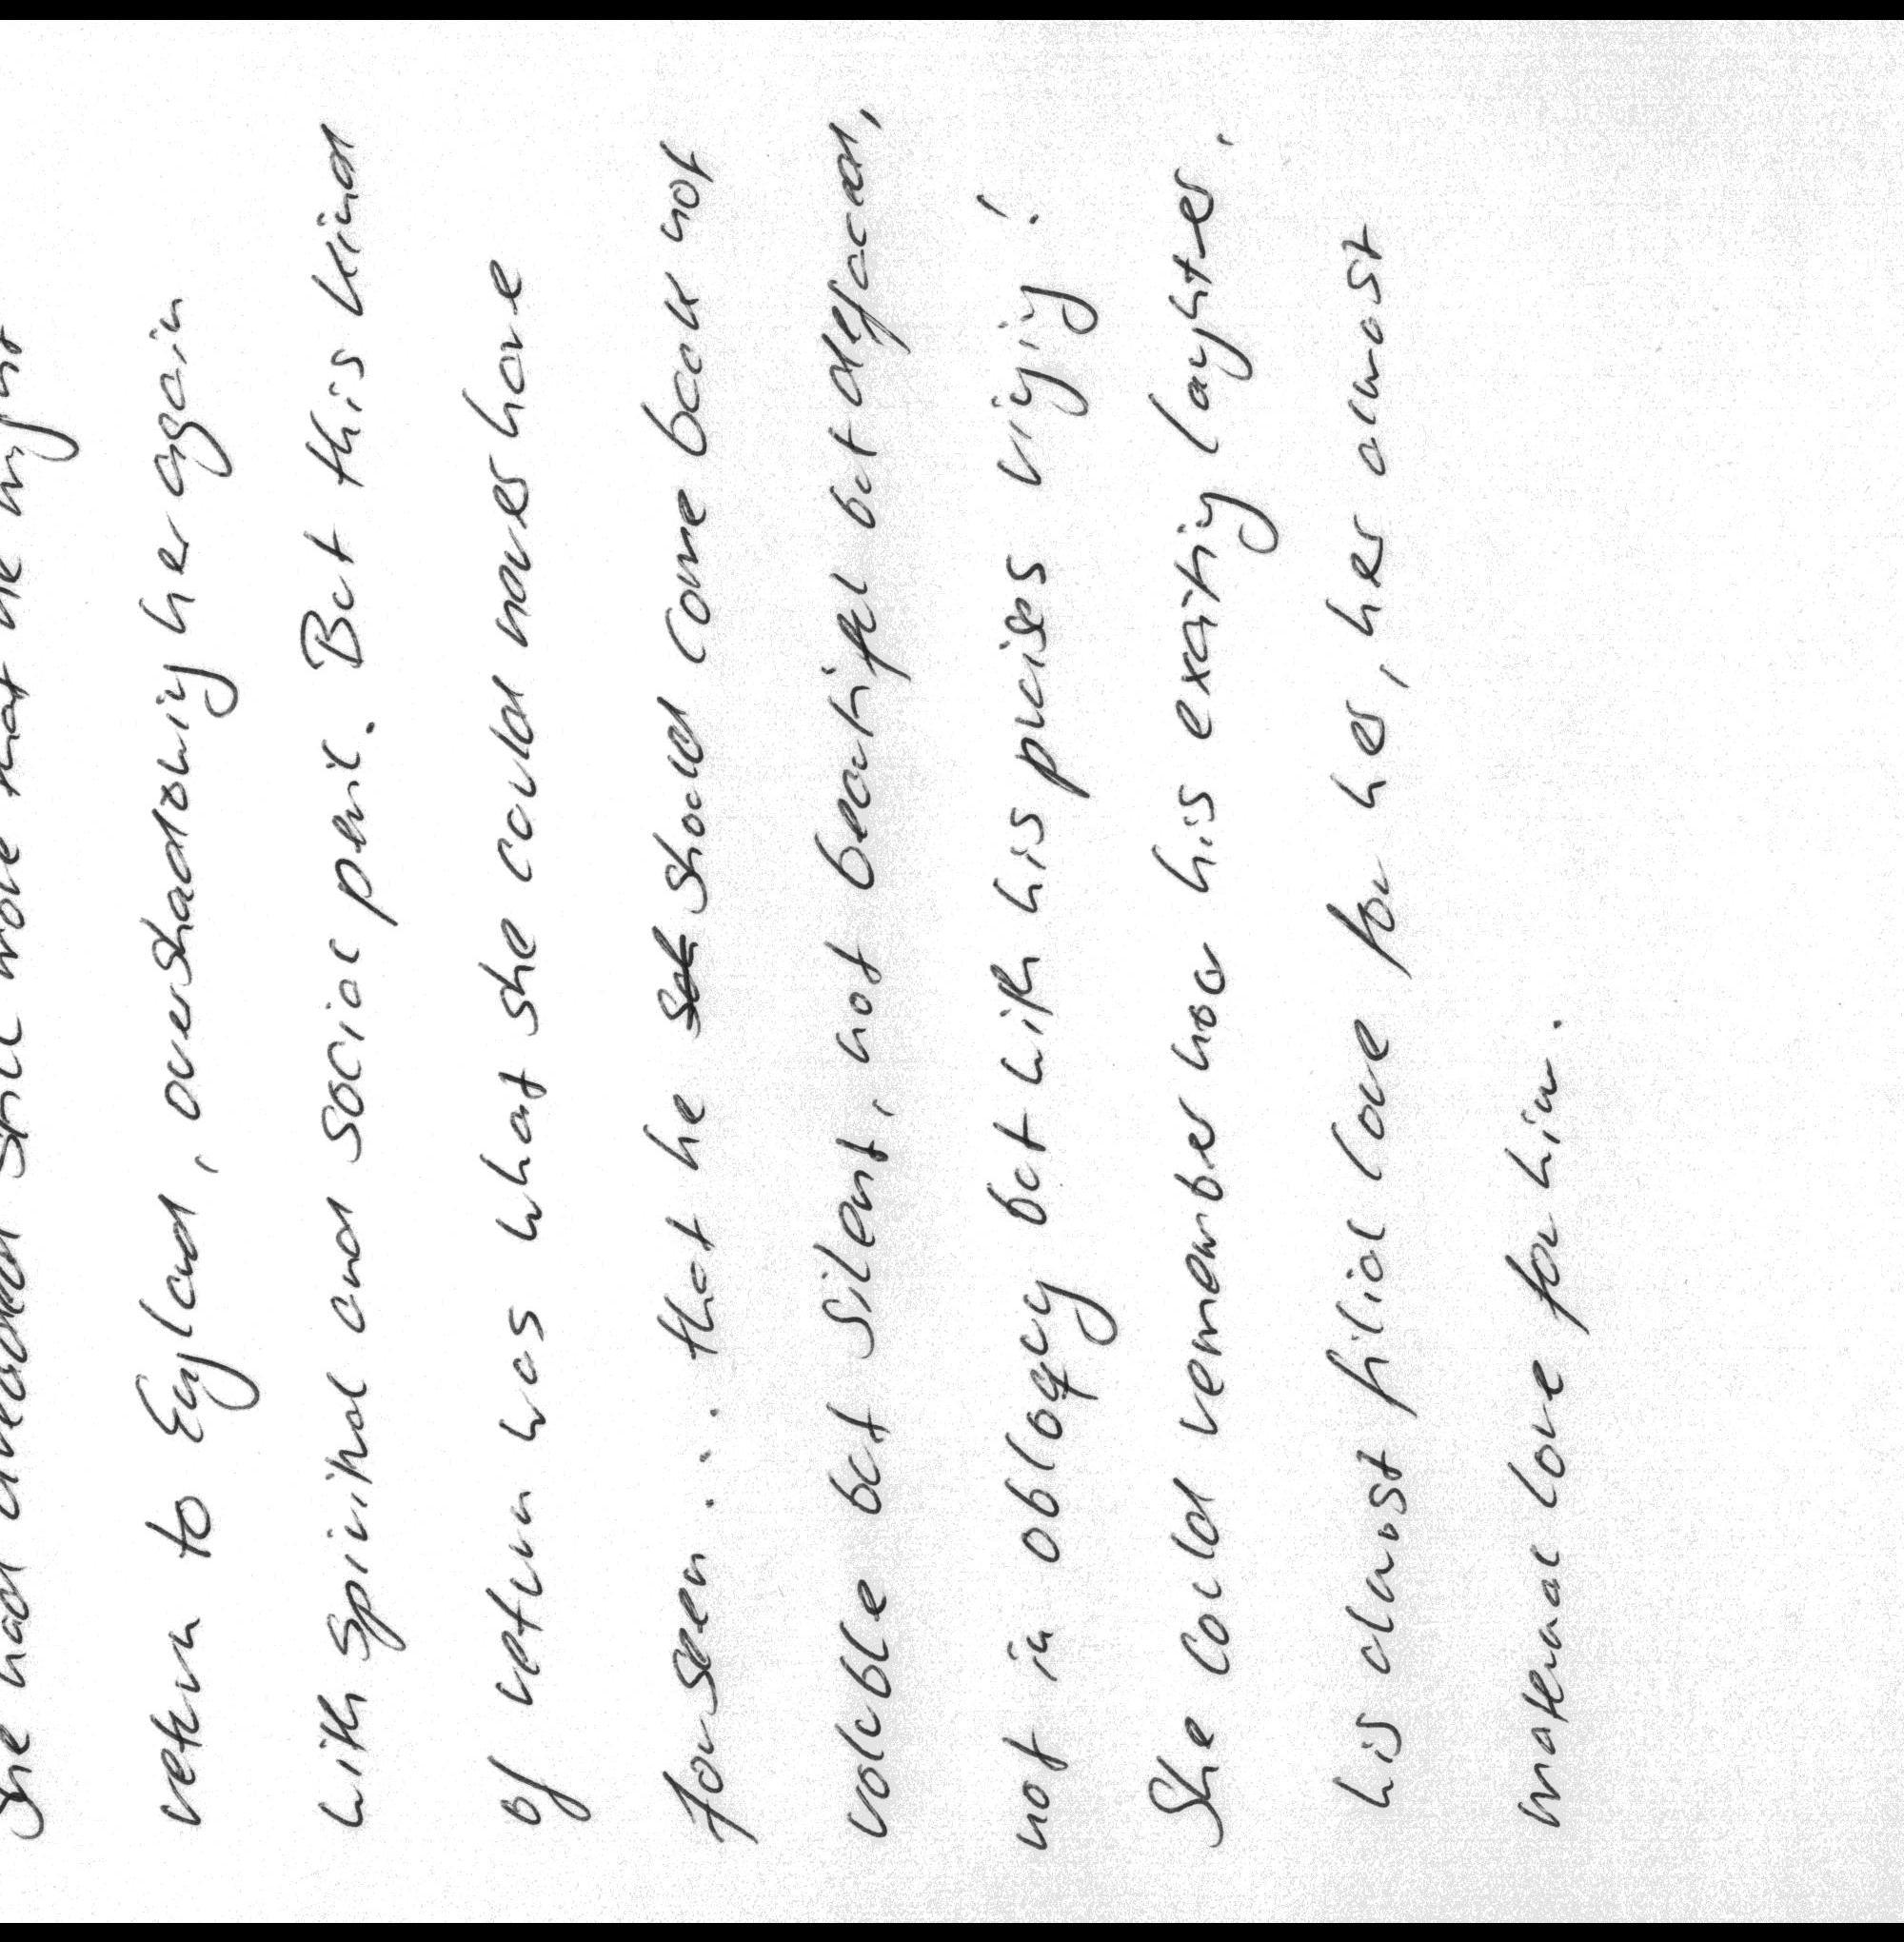 She had dreaded still more that he might
return to England, overshadowing her again
with spiritual and social peril. But this kind
of return was what she could never have
forseen... that he should come back not
voluble but silent, not beautiful but defaced,
not in obloquy but with his praises ringing!
She could remember how his exciting laughter,
his almost filial love for her, her almost
maternal love for him.